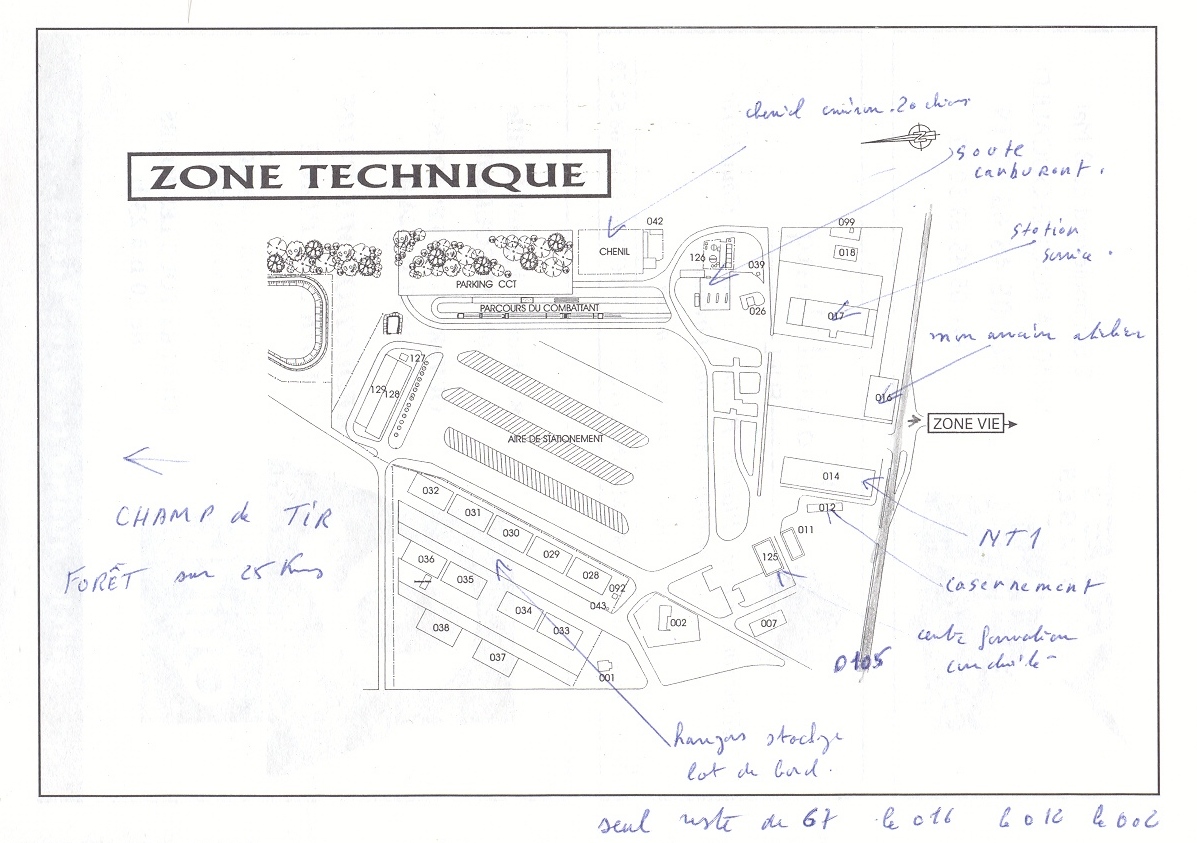 chenil environ 20 chiens
soute
carburant.
ZONE TECHNIQUE
station
service.
042
099
CHENIL
018
126
039
PARKING CCT
PARCOURS DU COMBATTANT
026
017
mon ancien atelier
127
129
128
016
ZONE VIE
AIRE DE STATIONEMENT
CHAMP de TIR
FORÊT sur 25 Kms
014
032
031
030
029
028
012
011
125
NT1
036
035
034
033
092
043
002
007
casernement
038
037
001
centre formation
conduite
D105
hangars stockage
lot de bord.
seul reste de 67 le 016 le 012 le 002